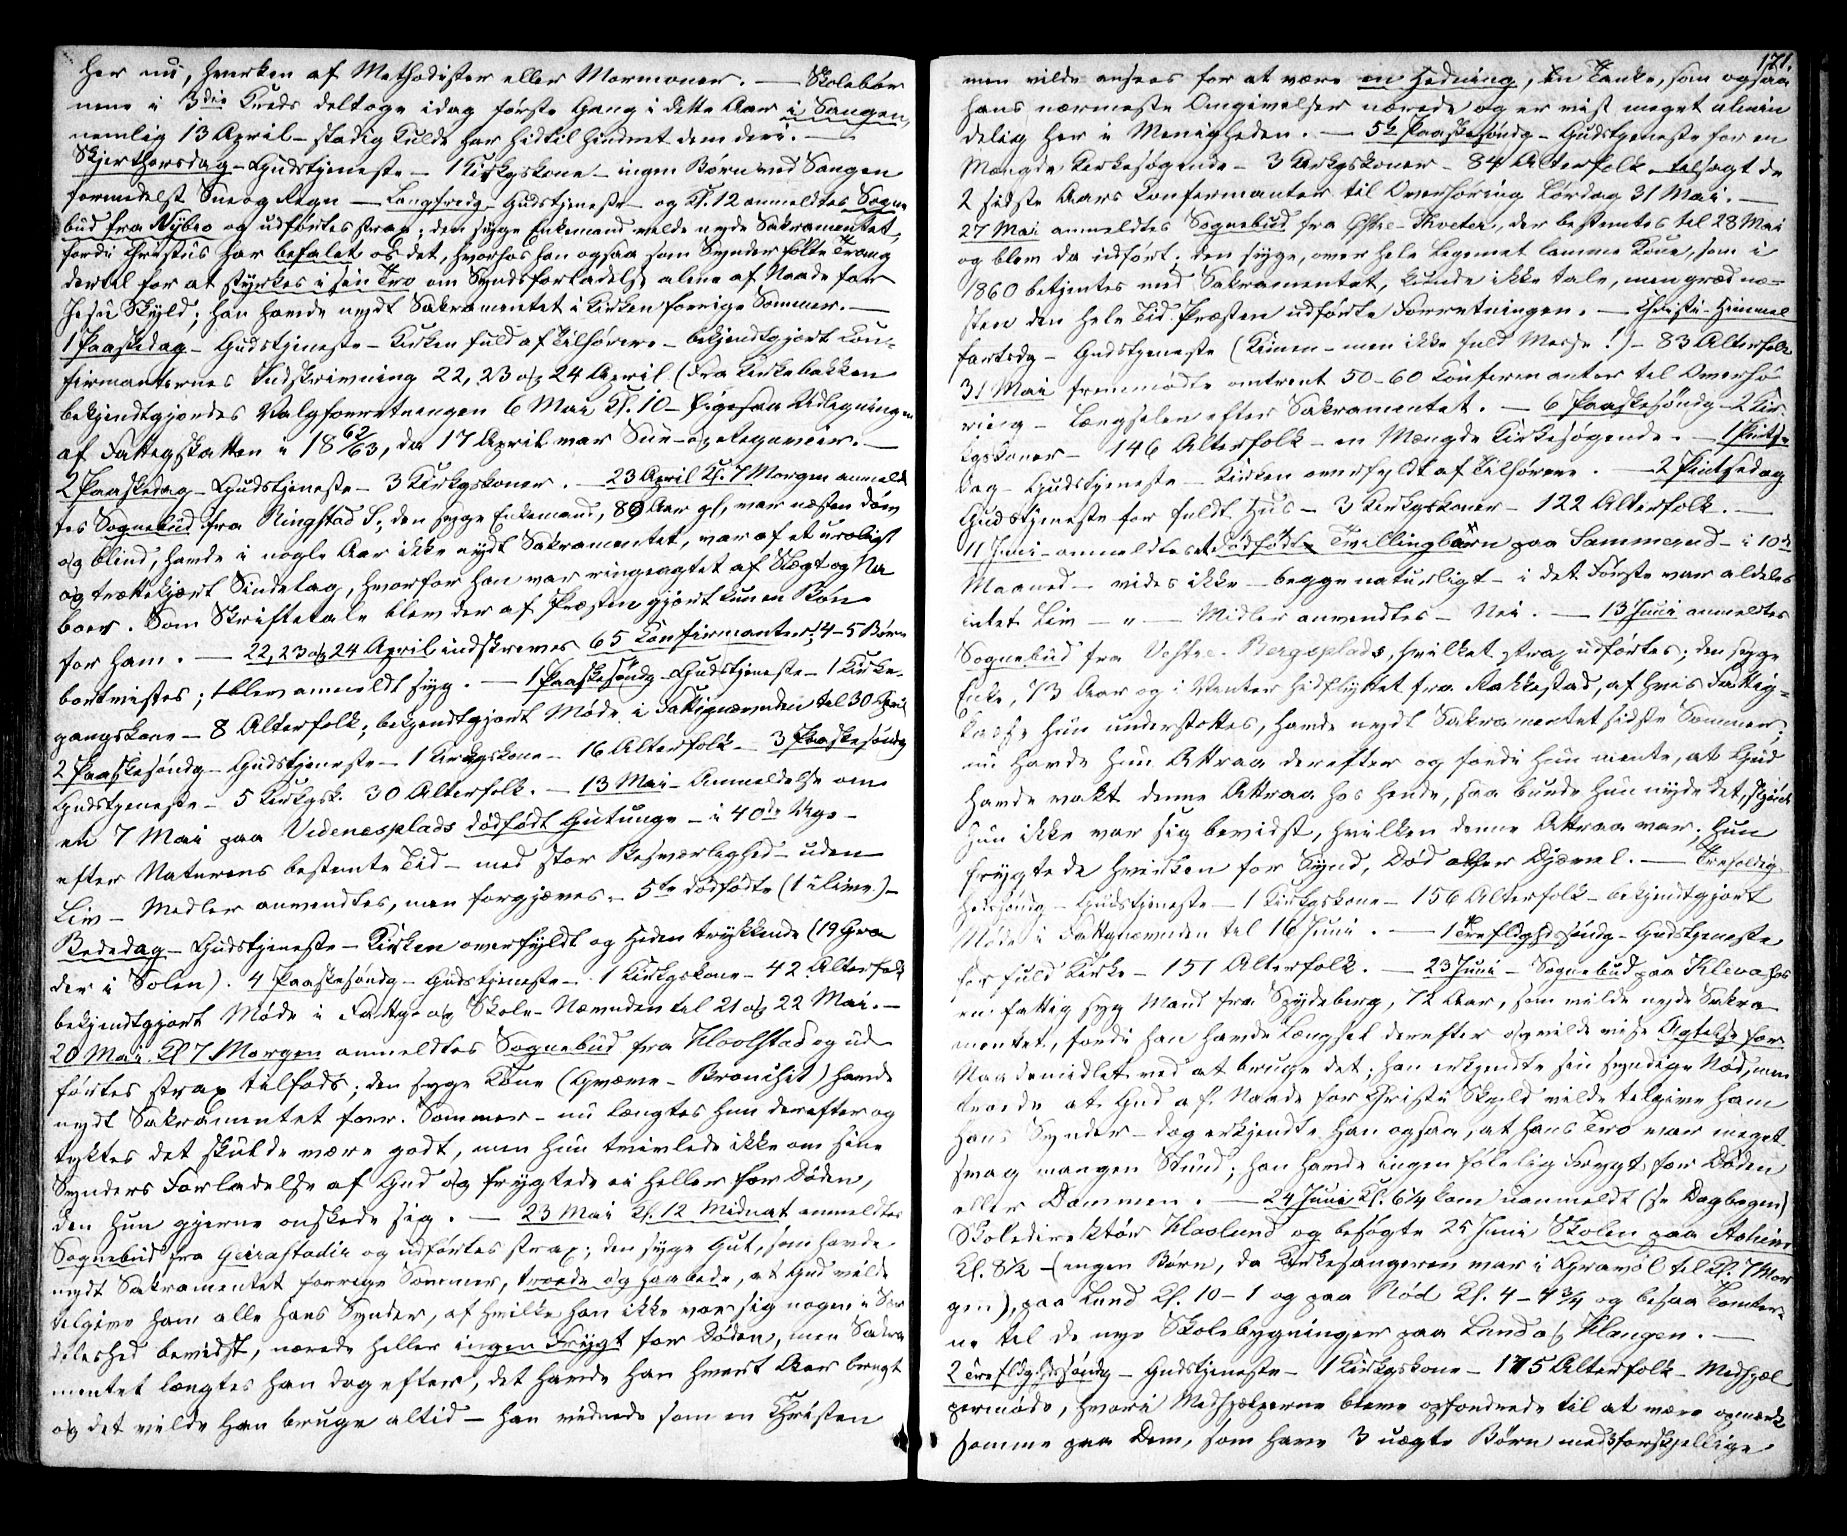 her nu, hverken af Methodister eller Mormoner. — Skolebør
nene i 3die Kreds deltoge idag første Gang i dette Aar i Sangen,
nemlig 13 April – stadig Kulde har hidtil hindret dem deri. —
Skjerthorsdag – Gudstjeneste – 1 Kirkgskone – ingen Børn ved Sangen
formedelst Sne og Regn — Langfredg – Gudstjeneste – og Kl. 12 anmeldtes Sogne
bud fra Nybro og udførtes strax; den syge Enkemand vilde nyde Sakramentet,
fordi Christus har befalet os det, hvorhos han ogsaa som Synder følte Trang
dertil for at styrkes i sin Tro om Syndsforladelse alene af Naade for
Jesu Skyld; han havde nydt Sakramentet i Kirken forrige Sommer. —
1 Paaskedag – Gudstjeneste – Kirken fuld af Tilhørere – bekjendtgjort Con-
firmanternes Indskrivning 22, 23 og 24 April (Fra Kirkebakken
bekjendtgjordes Valgforretningen 6 Mai Kl. 10 – ligesaa Udlegningen
af Fattigskatten i 1862/63, da 17 April var Sne- og Regnveir. —
2 Paaskedag – Gudstjeneste – 3 Kirkgskoner. — 23 April Kl. 7 Morgen anmeld
tes Sognebud fra Ringstad S.; den syge Enkemand, 89 Aar gl, var næsten døv
og blind, havde i nogle Aar ikke nydt Sakramentet, var af et uroligt
og trættekjært Sindelag, hvorfor han var ringeagtet af Slægt og Na
boer. Som Skriftetale blev der af Præsten gjort kun en Bøn
for ham. — 22, 23 og 24 April indskreves 65 Confirmanter; 4–5 Børn
bortvistes; 1 blev anmeldt syg. — 1 Paaskesøndg – Gudstjeneste – 1 Kirke-
gangskone – 8 Alterfolk; bekjendtgjort Møde i Fattignævnden til 30 April
2 Paaskesøndg – Gudstjeneste – 1 Kirkegskone – 16 Alterfolk – 3 Paaskesøndg
Gudstjeneste – 5 Kirkgsk. 30 Alterfolk. — 13 Mai – Anmeldelse om
en 7 Mai paa Videnesplads dødfødt Gutunge – i 40de Uge –
efter Naturens bestemte Tid – med stor Besværlighed – uden
Liv – Midler anvendtes, men forgjæves. – 5te dødfødte (1 i live.) –
Bededag – Gudstjeneste – Kirken overfyldt og Heden trykkende (19 Gra
der i Solen). 4 Paaskesøndg – Gudstjeneste – 1 Kirkgskone – 42 Alterfolk
bekjendtgjort Møde i Fattig- og Skole-Nævnden til 21 og 22 Mai. —
20 Mai Kl 7 Morgen anmeldtes Sognebud fra Hoolstad og ud
førtes strax tilfods; den syge Kone (Græve – Bronchit) havde
nydt Sakramentet forr. Sommer – nu længtes hun derefter og
tyktes det skulde være godt, men hun tvivlede ikke om sine
Synders Forladelse af Gud og frygtede ei heller for Døden,
den hun gjerne ønskede sig. — 23 Mai Kl. 12 Midnat anmeldtes
Sognebud fra Geirastadie og udførtes strax; den syge Gut, som havde
nydt Sakramentet forrige Sommer, troede og haabede, at Gud vilde
tilgive ham alle hans Synder, af hvilke han ikke var sig nogen i Sær
deleshed bevidst, nærede heller ingen Frygt for Døden, men Sakra
mentet længtes han dog efter, det havde han hvert Aar brugt
og det vilde han bruge altid – han vidnede som en Christen
171.
men vilde ansees for at være en Hedning, en Tanke, som ogsaa
hans nærmeste Omgivelser nærede og er vist meget almin
delig her i Menigheden. — 5te Paaskesøndg – Gudstjeneste for en
Mængde Kirkesøgende – 3 Kirkgskoner – 84 Alterfolk – tilsagt de
2 sidste Aars Confirmanter til Overhøring Lørdag 31 Mai. —
27 Mai anmeldtes Sognebud fra Østre-Thveter, der bestemtes til 28 Mai
og blev da udført; den syge, over hele Legemet lamme Kone, som i
1860 betjentes med Sakramentet, kunde ikke tale, men græd næ-
sten den hele Tid. Præsten udførte Forretningen. — Christi-Himmel
fartsdg – Gudstjeneste (Kimen – men ikke fuld Messe!) – 83 Alterfolk
31 Mai fremmødte omtrent 50–60 Confirmanter til Overhø
ring – Længselen efter Sakramentet. — 6 Paaskesøndg – 2 Kir
kgskoner – 146 Alterfolk – en Mængde Kirkesøgende. — 1 Pintse
dag – Gudstjeneste – Kirken overfyldt af Tilhørere. — 2 Pintsedag
Gudstjeneste for fuldt Hus – 3 Kirkgskoner – 122 Alterfolk. —
11 Juni – anmeldtes et dødfødt Tvillingbarn paa Sammerud – i 10de
Maaned – vides ikke – begge naturligt – i det Første var aldeles
intet Liv – " – Midler anvendtes – Nei. — 13 Juni anmeldtes
Sognebud fra Vestre-Bergsplads, hvilket strax udførtes; den syge
Enke, 73 Aar og i Vinter hidflyttet fra Rakkestad, af hvis Fattig-
kasse hun understøttes, havde nydt Sakramentet sidste Sommer;
nu havde hun Attraa derefter og fordi hun mente, at Gud
havde vakt denne Attraa hos hende, saa burde hun nyde det, skjøndt
hun ikke var sig bevidst, hvilken denne Attraa var; hun
frygtede hverken for Synd, Død eller Djævel. — Trefoldig
hedssøndg – Gudstjeneste – 1 Kirkgskone – 156 Alterfolk – bekjendtgjort
Møde i Fattignævnden til 16 Juni. — 1 Trefldighdssøndg – Gudstjeneste
for fuld Kirke – 151 Alterfolk. — 23 Juni – Sognebud paa Kleva hos
en fattig syg Mand fra Spydeberg, 72 Aar, som vilde nyde Sakra
mentet, fordi han havde Længsel derefter og vilde vise Agtelse for
Naademidlet ved at bruge det; han erkjendte sin syndige Nød, men
troede at Gud af Naade for Christi Skyld vilde tilgive ham
hans Synder – dog erkjendte han ogsaa, at hans Tro var meget
svag mangen Stund; han havde ingen følelig Frygt for Døden
eller Dommen. — 24 Juni Kl. 6¼ kom uanmeldt (se Dagbogen)
Skoledirektør Haslund og besøgte 25 Juni Skolen paa Aaheim
Kl. 8½ – (ingen Børn, da Kirkesangeren var i Gravøl til Kl. 7 Mor
gen), paa Lund Kl. 10–1 og paa Nød Kl. 4–4¾ og besaa Tomter-
ne til de nye Skolebygninger paa Lund og Klangen. —
2 Trefldghdssøndg – Gudstjeneste – 1 Kirkgskone – 175 Alterfolk – Medhjæl
permøde, hvori Medhjælperne bleve opfordrede til at være opmærk
somme paa Dem, som have 3 uægte Børn med 3 forskjellige